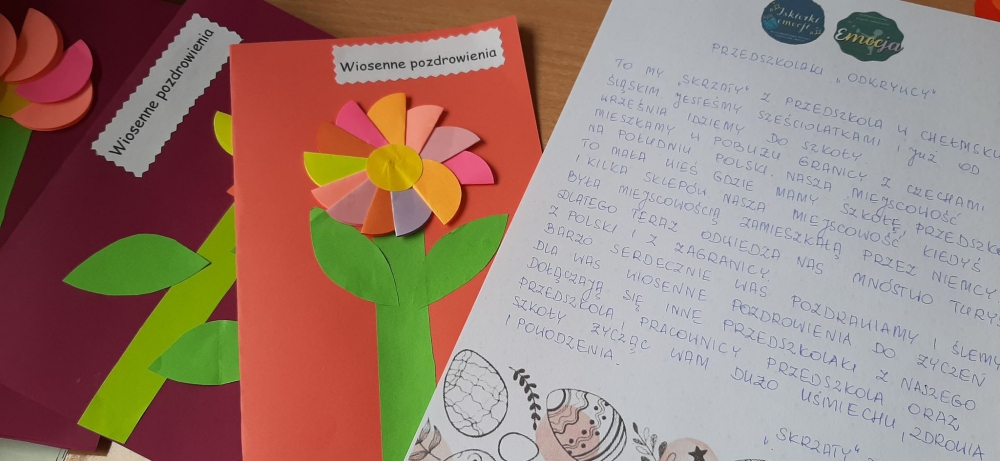 Wiosenne pozdrowienia
Wiosenne pozdrowienia
Iskierki
emocji
Emocja
PRZEDSZKOLAKI „ODKRYWCY”
TO MY „SKRZATY” Z PRZEDSZKOLA W CHEŁMSKU
ŚLĄSKIM JESTEŚMY SZEŚCIOLATKAMI I JUŻ OD
WRZEŚNIA IDZIEMY DO SZKOŁY.
MIESZKAMY W POBLIŻU GRANICY Z CZECHAMI
NA POŁUDNIU POLSKI. NASZA MIEJSCOWOŚĆ
TO MAŁA WIEŚ GDZIE MAMY SZKOŁĘ, PRZEDSZK
I KILKA SKLEPÓW. NASZA MIEJSCOWOŚĆ KIEDYŚ
BYŁA MIEJSCOWOŚCIĄ ZAMIESZKAŁĄ PRZEZ NIEMCY
DLATEGO TERAZ ODWIEDZA NAS MNÓSTWO TURYS
Z POLSKI I Z ZAGRANICY.
BARZO SERDECZNIE WAS POZDRAWIAMY I ŚLEMY
DLA WAS WIOSENNE POZDROWIENIA DO ŻYCZEŃ
DOŁĄCZAJĄ SIĘ INNE PRZEDSZKOLAKI Z NASZEGO
PRZEDSZKOLA, PRACOWNICY PRZEDSZKOLA ORAZ
SZKOŁY ŻYCZĄC WAM DUŻO UŚMIECHU, ZDROWIA
I POWODZENIA.
„SKRZATY”